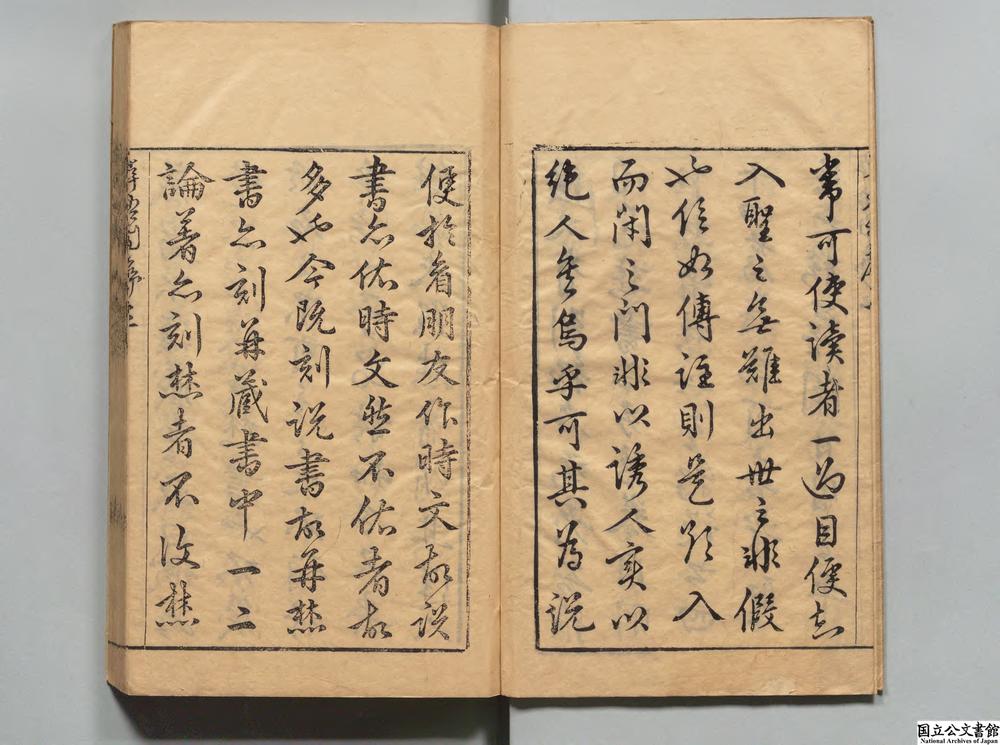 常可使讀者一過目便知
入聖之無難出世之非假
也信如傳註則是欲入
而閉之門非以誘人實以
絕人矣烏乎可其為說
便於看朋友作時文故說
書亦佑時文然不佑者故
多也今既刻說書故再焚
書亦刻再藏書中一二
論著亦刻焚者不復焚
国立公文書館
National Archives of Japan